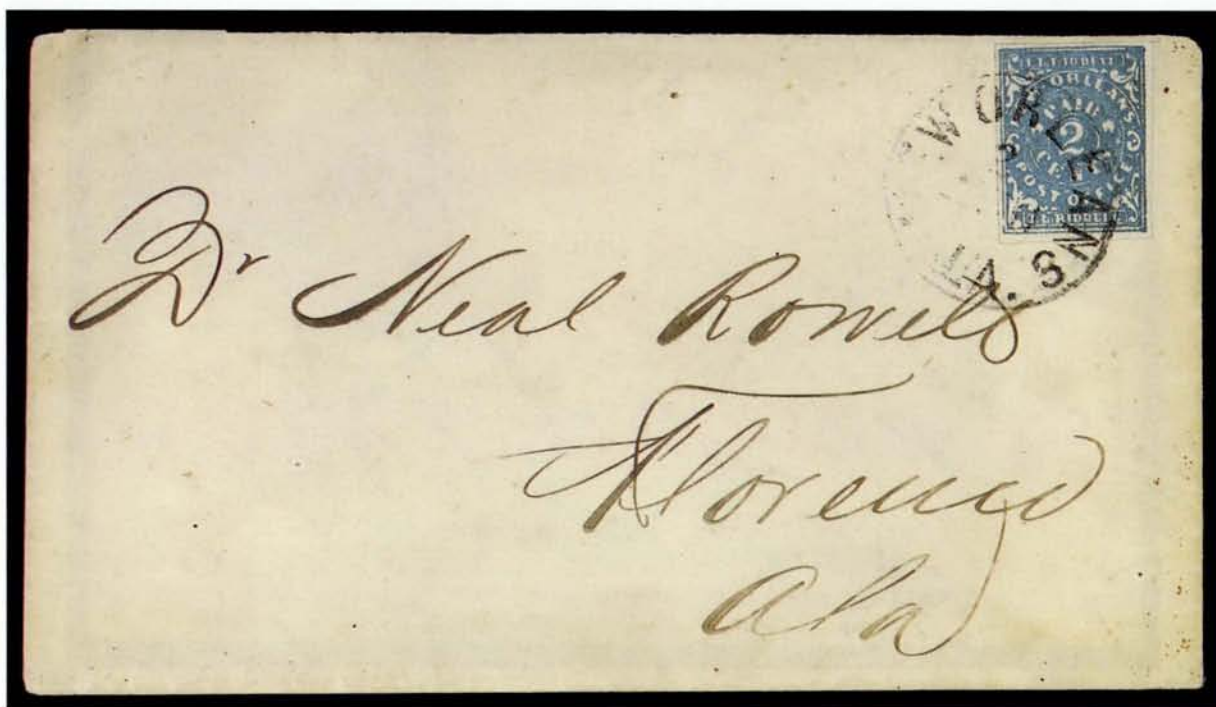 N. ORLEANS
PAID
2
CENTS
POST OFFICE
J.L. RIDDELL
NEW ORLEANS LA.
Dr Neal Rowell
Florence
Ala